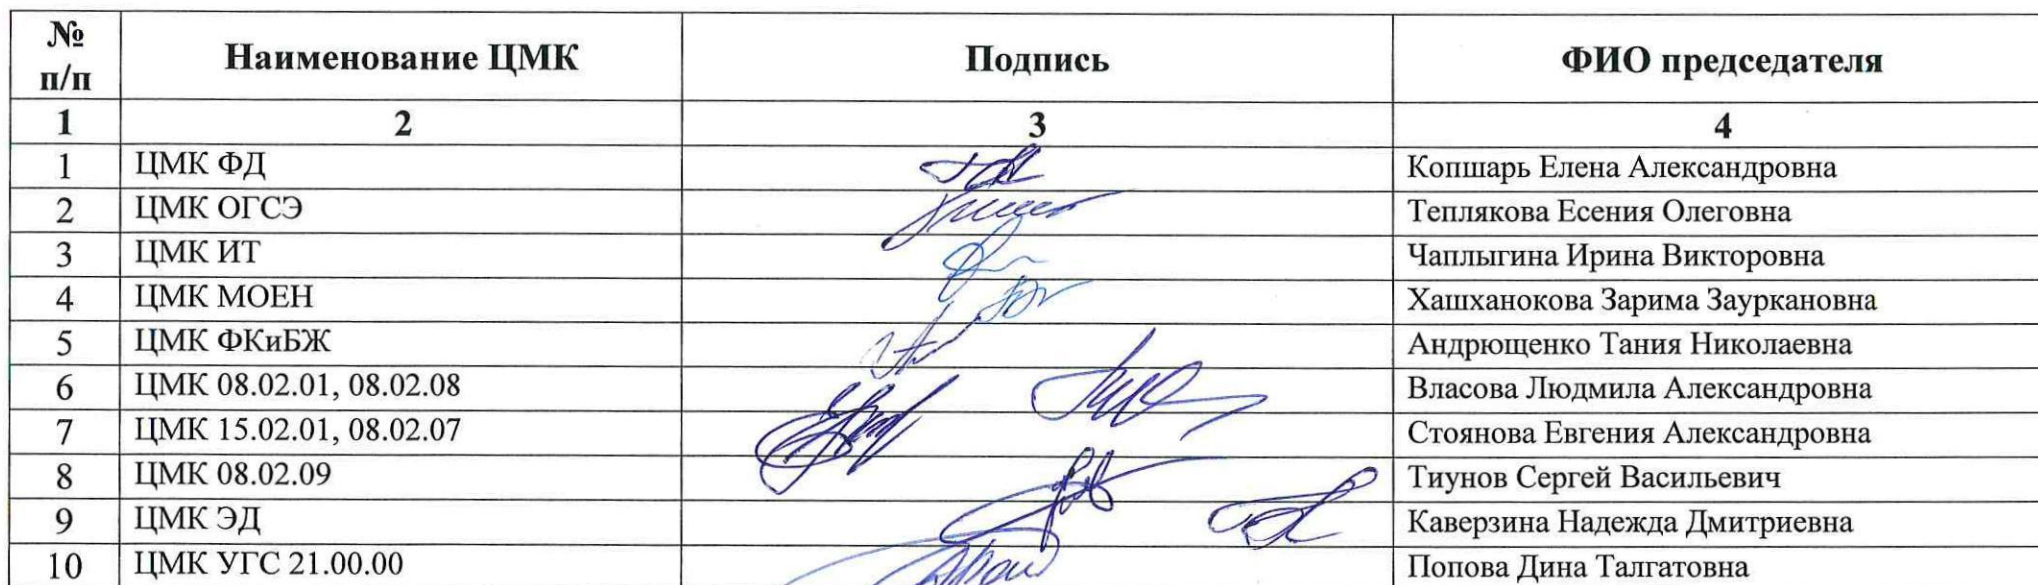 № п/п Наименование ЦМК Подпись ФИО председателя
1 2 3 4
1 ЦМК ФД Копшарь Елена Александровна
2 ЦМК ОГСЭ Теплякова Есения Олеговна
3 ЦМК ИТ Чаплыгина Ирина Викторовна
4 ЦМК МОЕН Хашханокова Зарима Зауркановна
5 ЦМК ФКиБЖ Андрющенко Тания Николаевна
6 ЦМК 08.02.01, 08.02.08 Власова Людмила Александровна
7 ЦМК 15.02.01, 08.02.07 Стоянова Евгения Александровна
8 ЦМК 08.02.09 Тиунов Сергей Васильевич
9 ЦМК ЭД Каверзина Надежда Дмитриевна
10 ЦМК УГС 21.00.00 Попова Дина Талгатовна